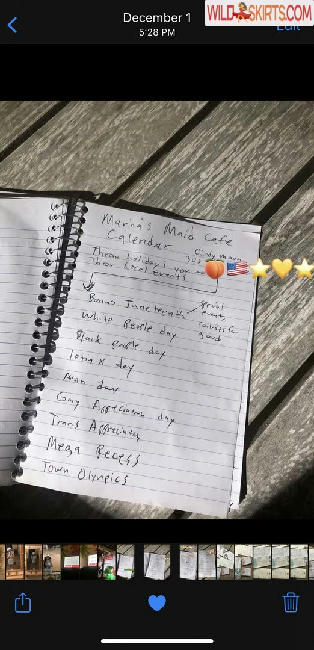 December 1
5:28 PM
Edit
WILDSKIRTS.COM
Marina's Maid Cafe
Calendar
Theme holidays you
local events
Bonus Juneteenth
White People day
Black people day
day
Asian day
Gay Appreciation day
Trans Appreciation
Mega Recess
Town Olympics